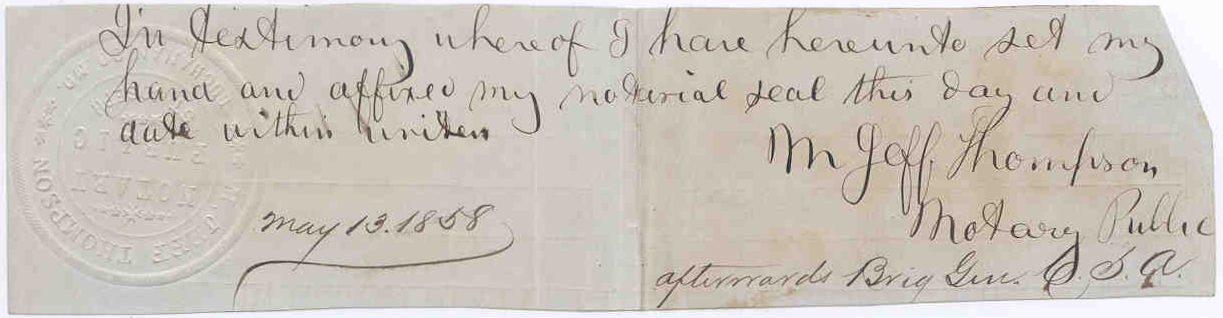 In testimony whereof I have hereunto set my
hand and affixed my notarial seal this day and
date within written
M Jeff. Thompson
Notary Public
May 13. 1858
afterwards Brig Gen. C. S. A.
M. JEFF THOMPSON
NOTARY
PUBLIC